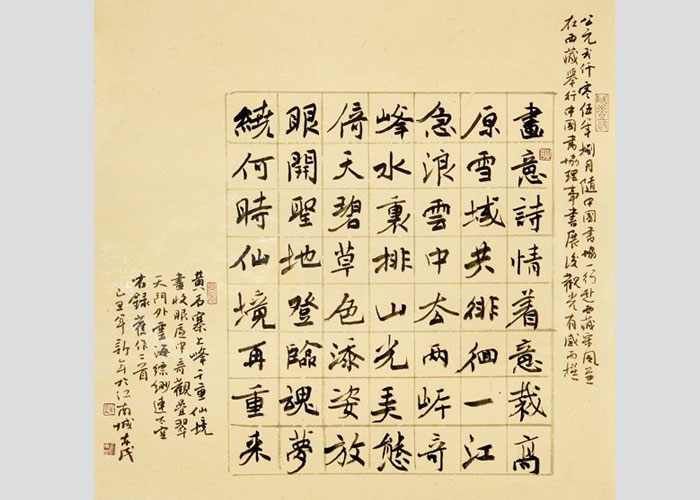 公元弍仟零伍年捌月隨中國書協一行赴西藏采風並
在西藏舉行中國書協理事書展後觀光有感而撰
畫意詩情着意裁高
原雪域共徘徊一江
急浪雲中去兩岸奇
峰水裏排山光美態
倚天碧草色添姿放
眼開聖地登臨魂夢
繞何時仙境再重来
黄石寨上峰千重仙境
盡收眼底中奇觀叠翠
天門外雲海縹緲連天空
右錄舊作二首
己丑年新年於江南城